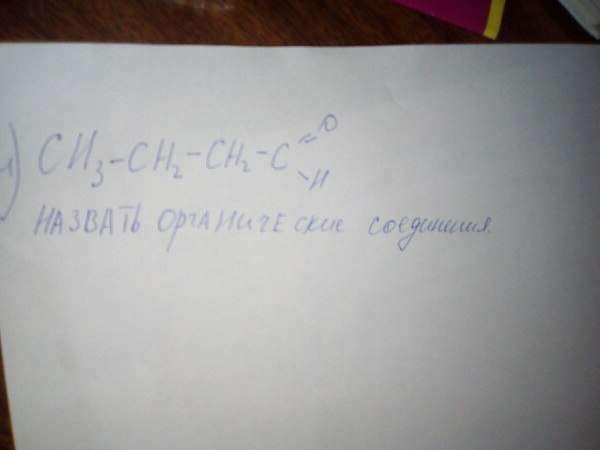 1) CH3-CH2-CH2-C=O
-H
НАЗВАТЬ ОРГАНИЧЕСКИЕ соединения